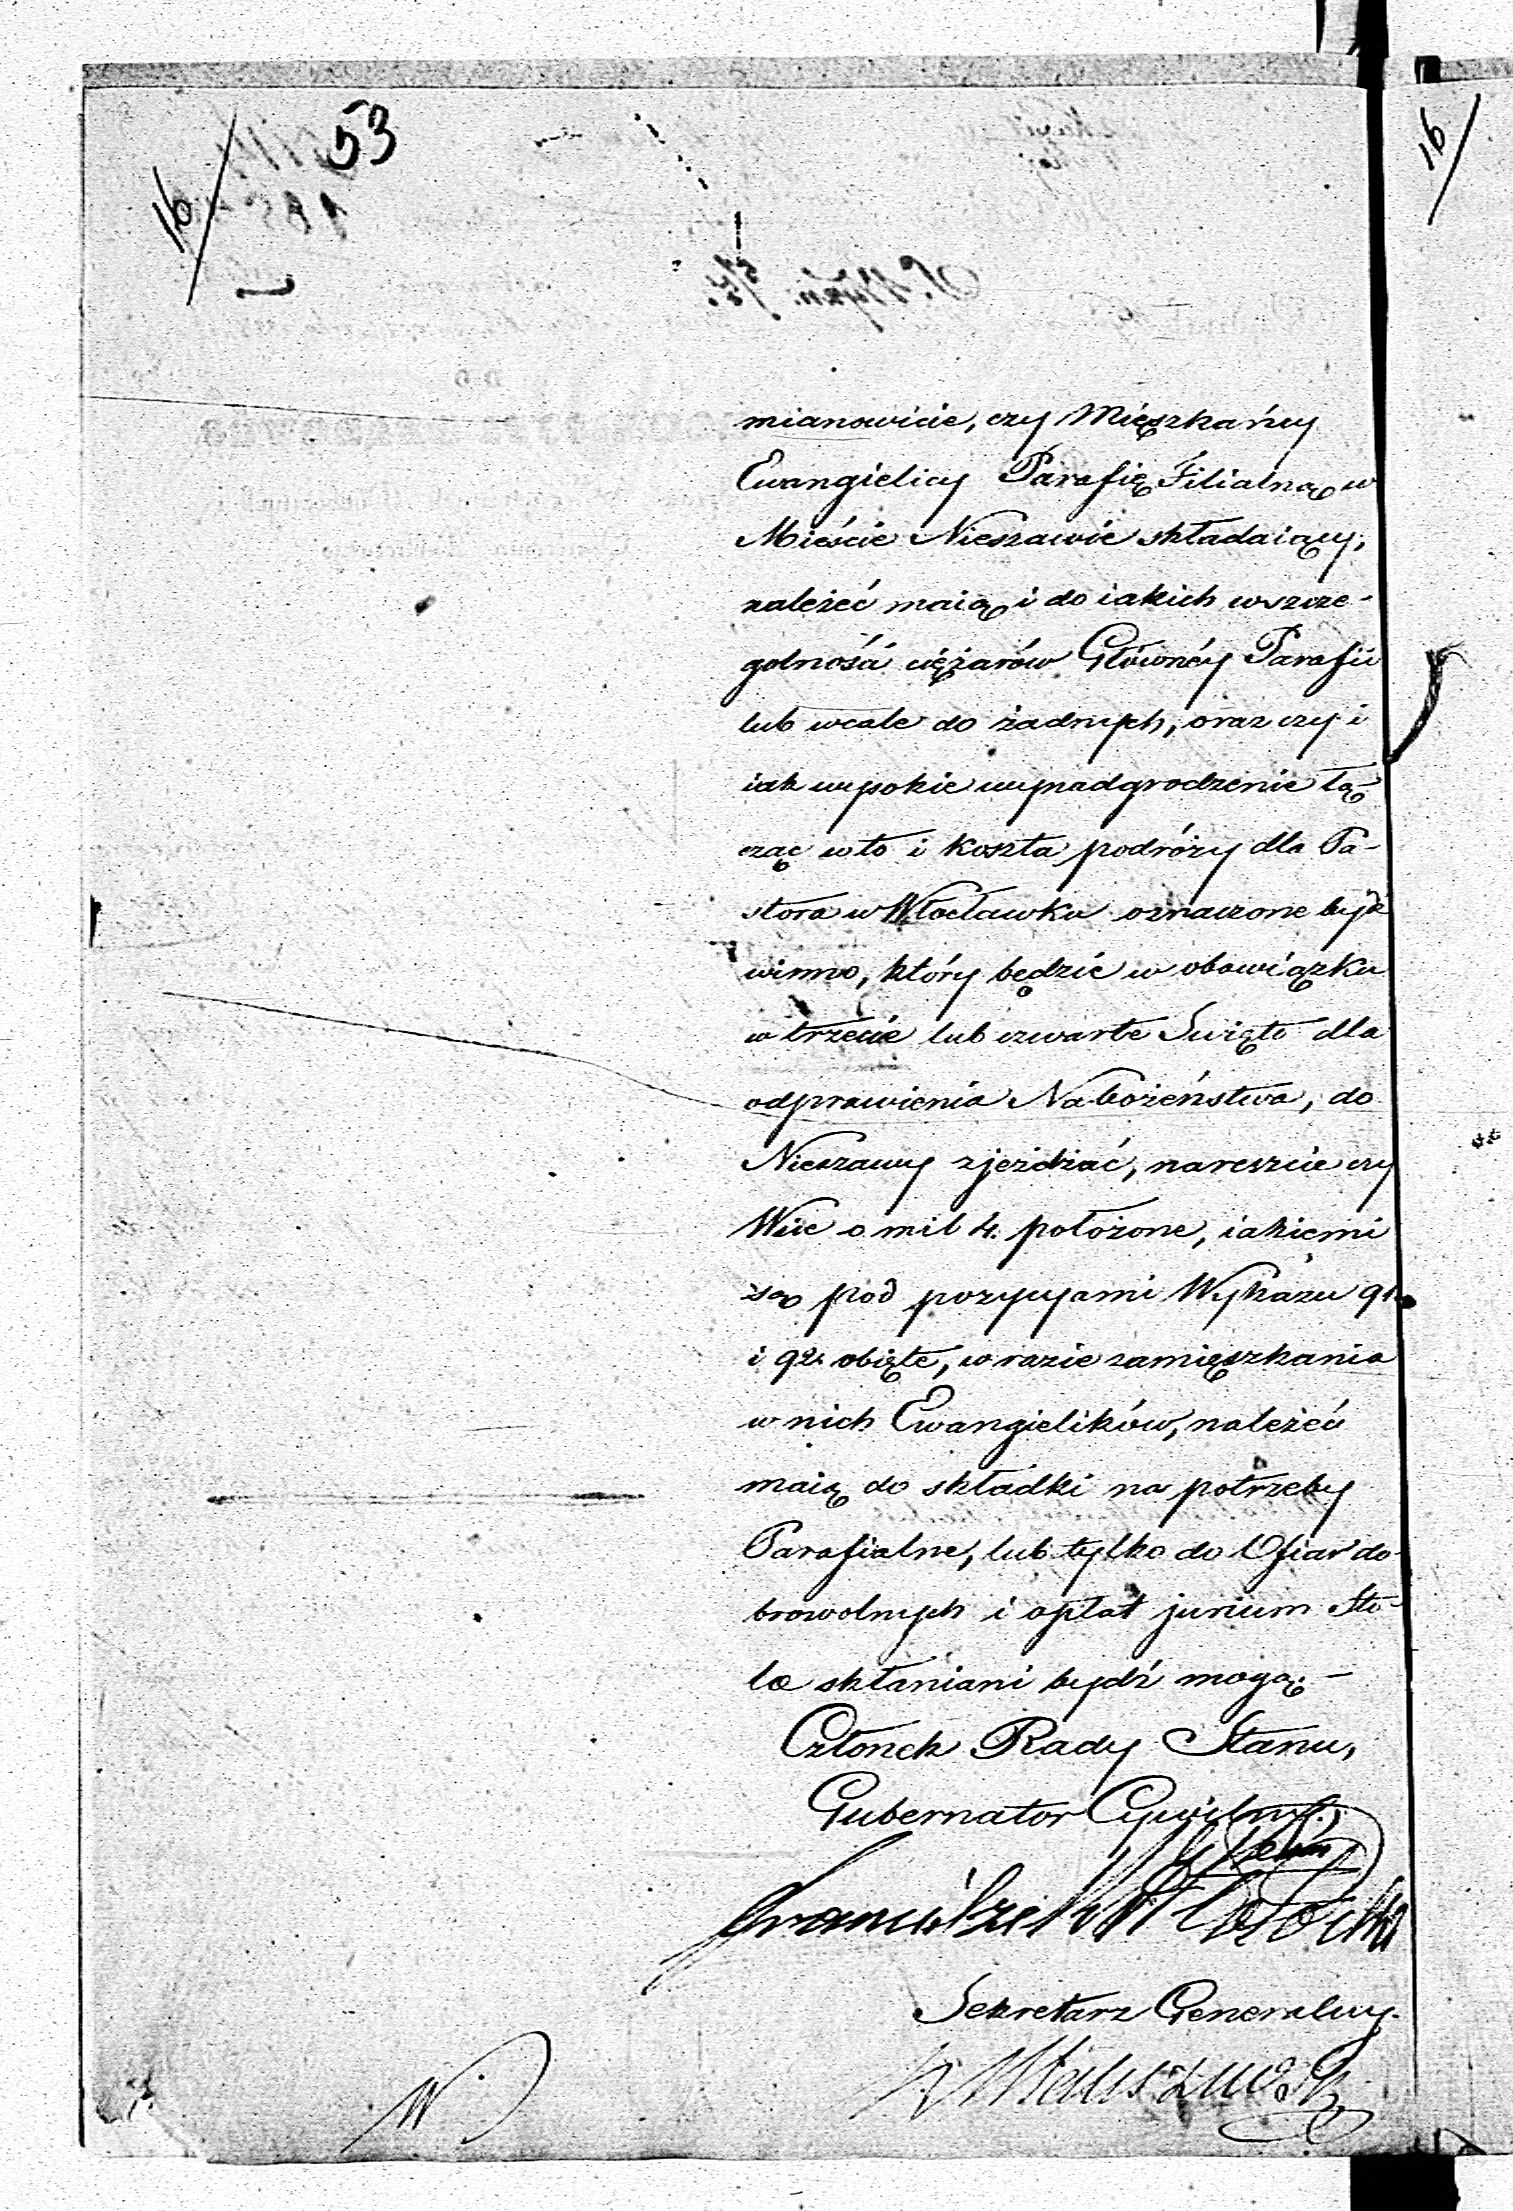 53
16
16
mianowicie, czy Mięszkańcy
Ewangielicy Parafię Filialną w
Mieście Nieszawie składaiący,
należeć maią i do iakich wszcze-
golności ciężarów Głównéy Parafii
lub wcale do żadnych, oraz czy i
iak wysokie wynadgrodzenie łą-
cząc w to i koszta podróży dla Pa-
stora w Włocławku oznaczone bydź
winno, który będzie w obowiązku
w trzecie lub czwarte Swięto dla
odprawienia Nabożeństwa, do
Nieszawy zjeżdżać, nareszcie czy
Wsie o mil 4. położone, iakiemi
są pod pozycyami Wykazu 91.
i 92. obięte, w razie zamięszkania
w nich Ewangielików, należeć
maią do składki na potrzeby
Parafialne, lub tylko do Ofiar do-
browolnych i opłat jurium Sto-
læ skłaniani bydź mogą. —
Członek Rady Stanu,
Gubernator Cywilny.
Franciszek
Sekretarz Generalny.